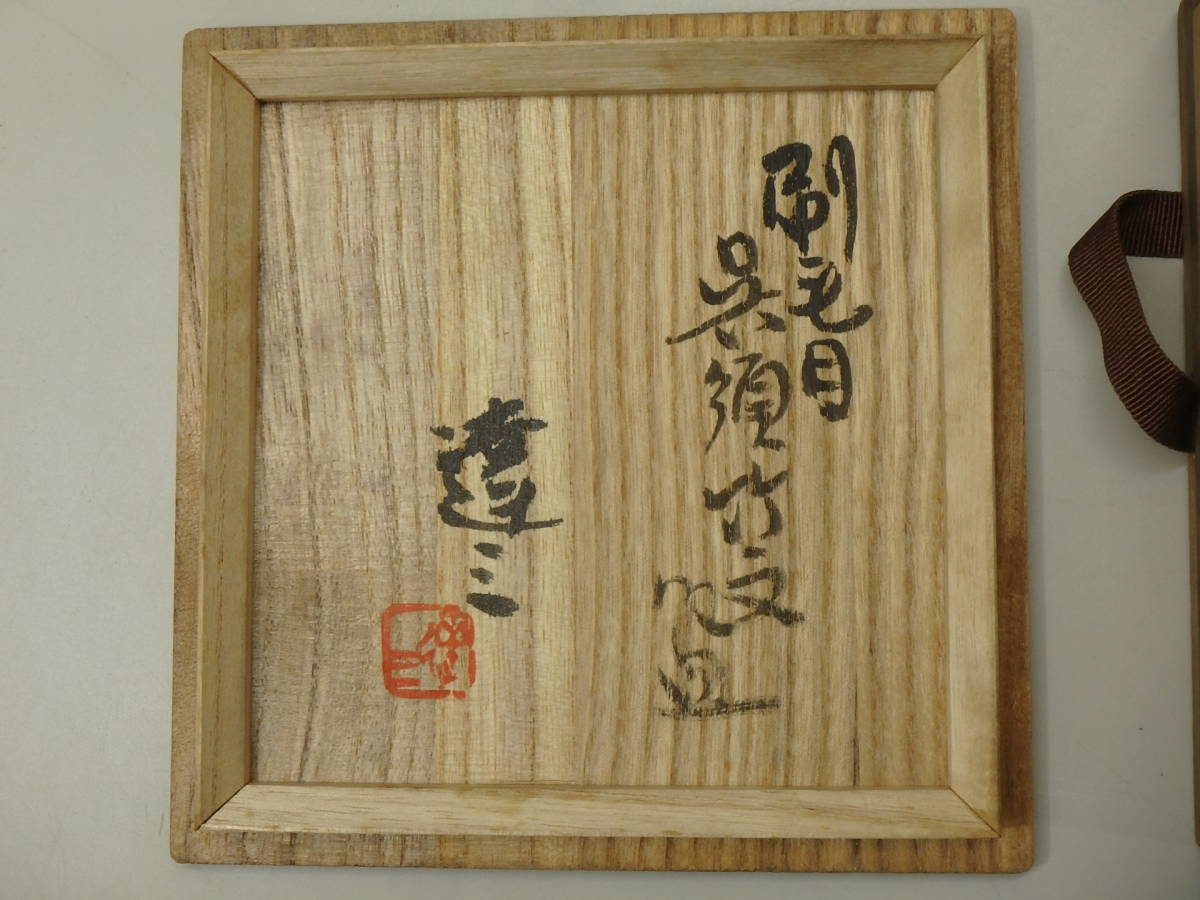 刷毛目
呉須竹文皿
達三